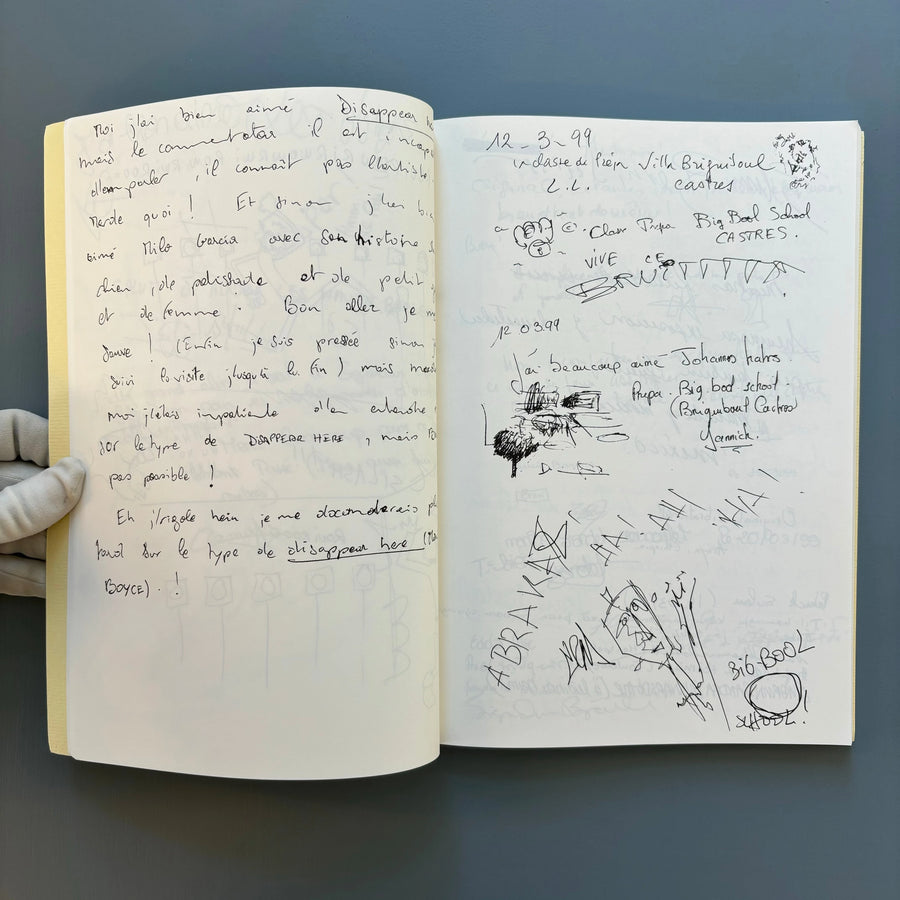 Moi j'ai bien aimé Disappear
mais le commentateur il est incapa
d'en parler, il connait pas l'artiste
merde quoi ! Et sinon j'ai bien
aimé Milo Garcia avec son histoire
chien, de palissade et de petit
et de femme. Bon allez je
sauve ! (Enfin je suis pressée sinon j
suivi la visite jusqu'à la fin) mais
moi j'étais impatiente d'en entendre
sur le type de DISAPPEAR HERE, mais
pas possible !
Eh j'rigole hein je me documenterais
tard sur le type de disappear here
BOYCE). !
12_3_99
classe de Prépa Villa Briguiboul
L.L. castres
Class Prepa Big Bool School
CASTRES.
VIVE CE
BRUIT
12 03.99
J'ai beaucoup aimé Johannes Kahrs.
Prepa. Big bool school.
(Briguiboul Castres
Yannick.
ABRAKA HA! AH! HA!
BIG-BOOL
SCHOOL!